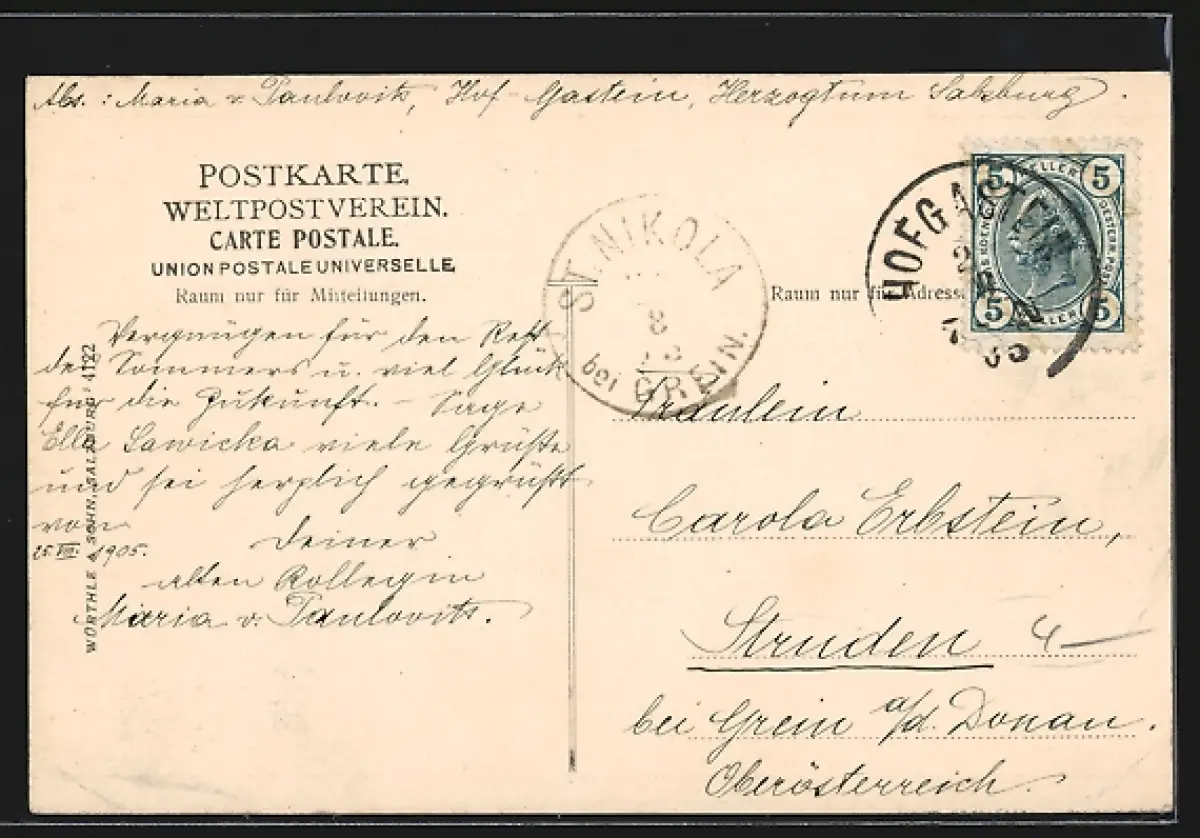 Abs. : Maria v. Paulovits, Hof-Gastein, Herzogtum Salzburg.
POSTKARTE.
WELTPOSTVEREIN.
CARTE POSTALE.
UNION POSTALE UNIVERSELLE.
Raum nur für Mitteilungen.
Vergnügen für den Rest
des Sommers u. viel Glück
für die Zukunft. - Sage
Ella Sawicka viele Grüße
und sei herzlich gegrüßt
von
25. VIII. 1905.
Deiner
alten Kollegin
Maria v. Paulovits.
WÖRTHLE & SOHN, SALZBURG 4122
ST. NIKOLA
8
bei GREIN.
HOFGASTEIN
05
5 HELLER 5
5 HELLER 5
Raum nur für Adresse
Fräulein
Carola Erbstein,
Struden 4
bei Grein a/d. Donau.
Oberösterreich.